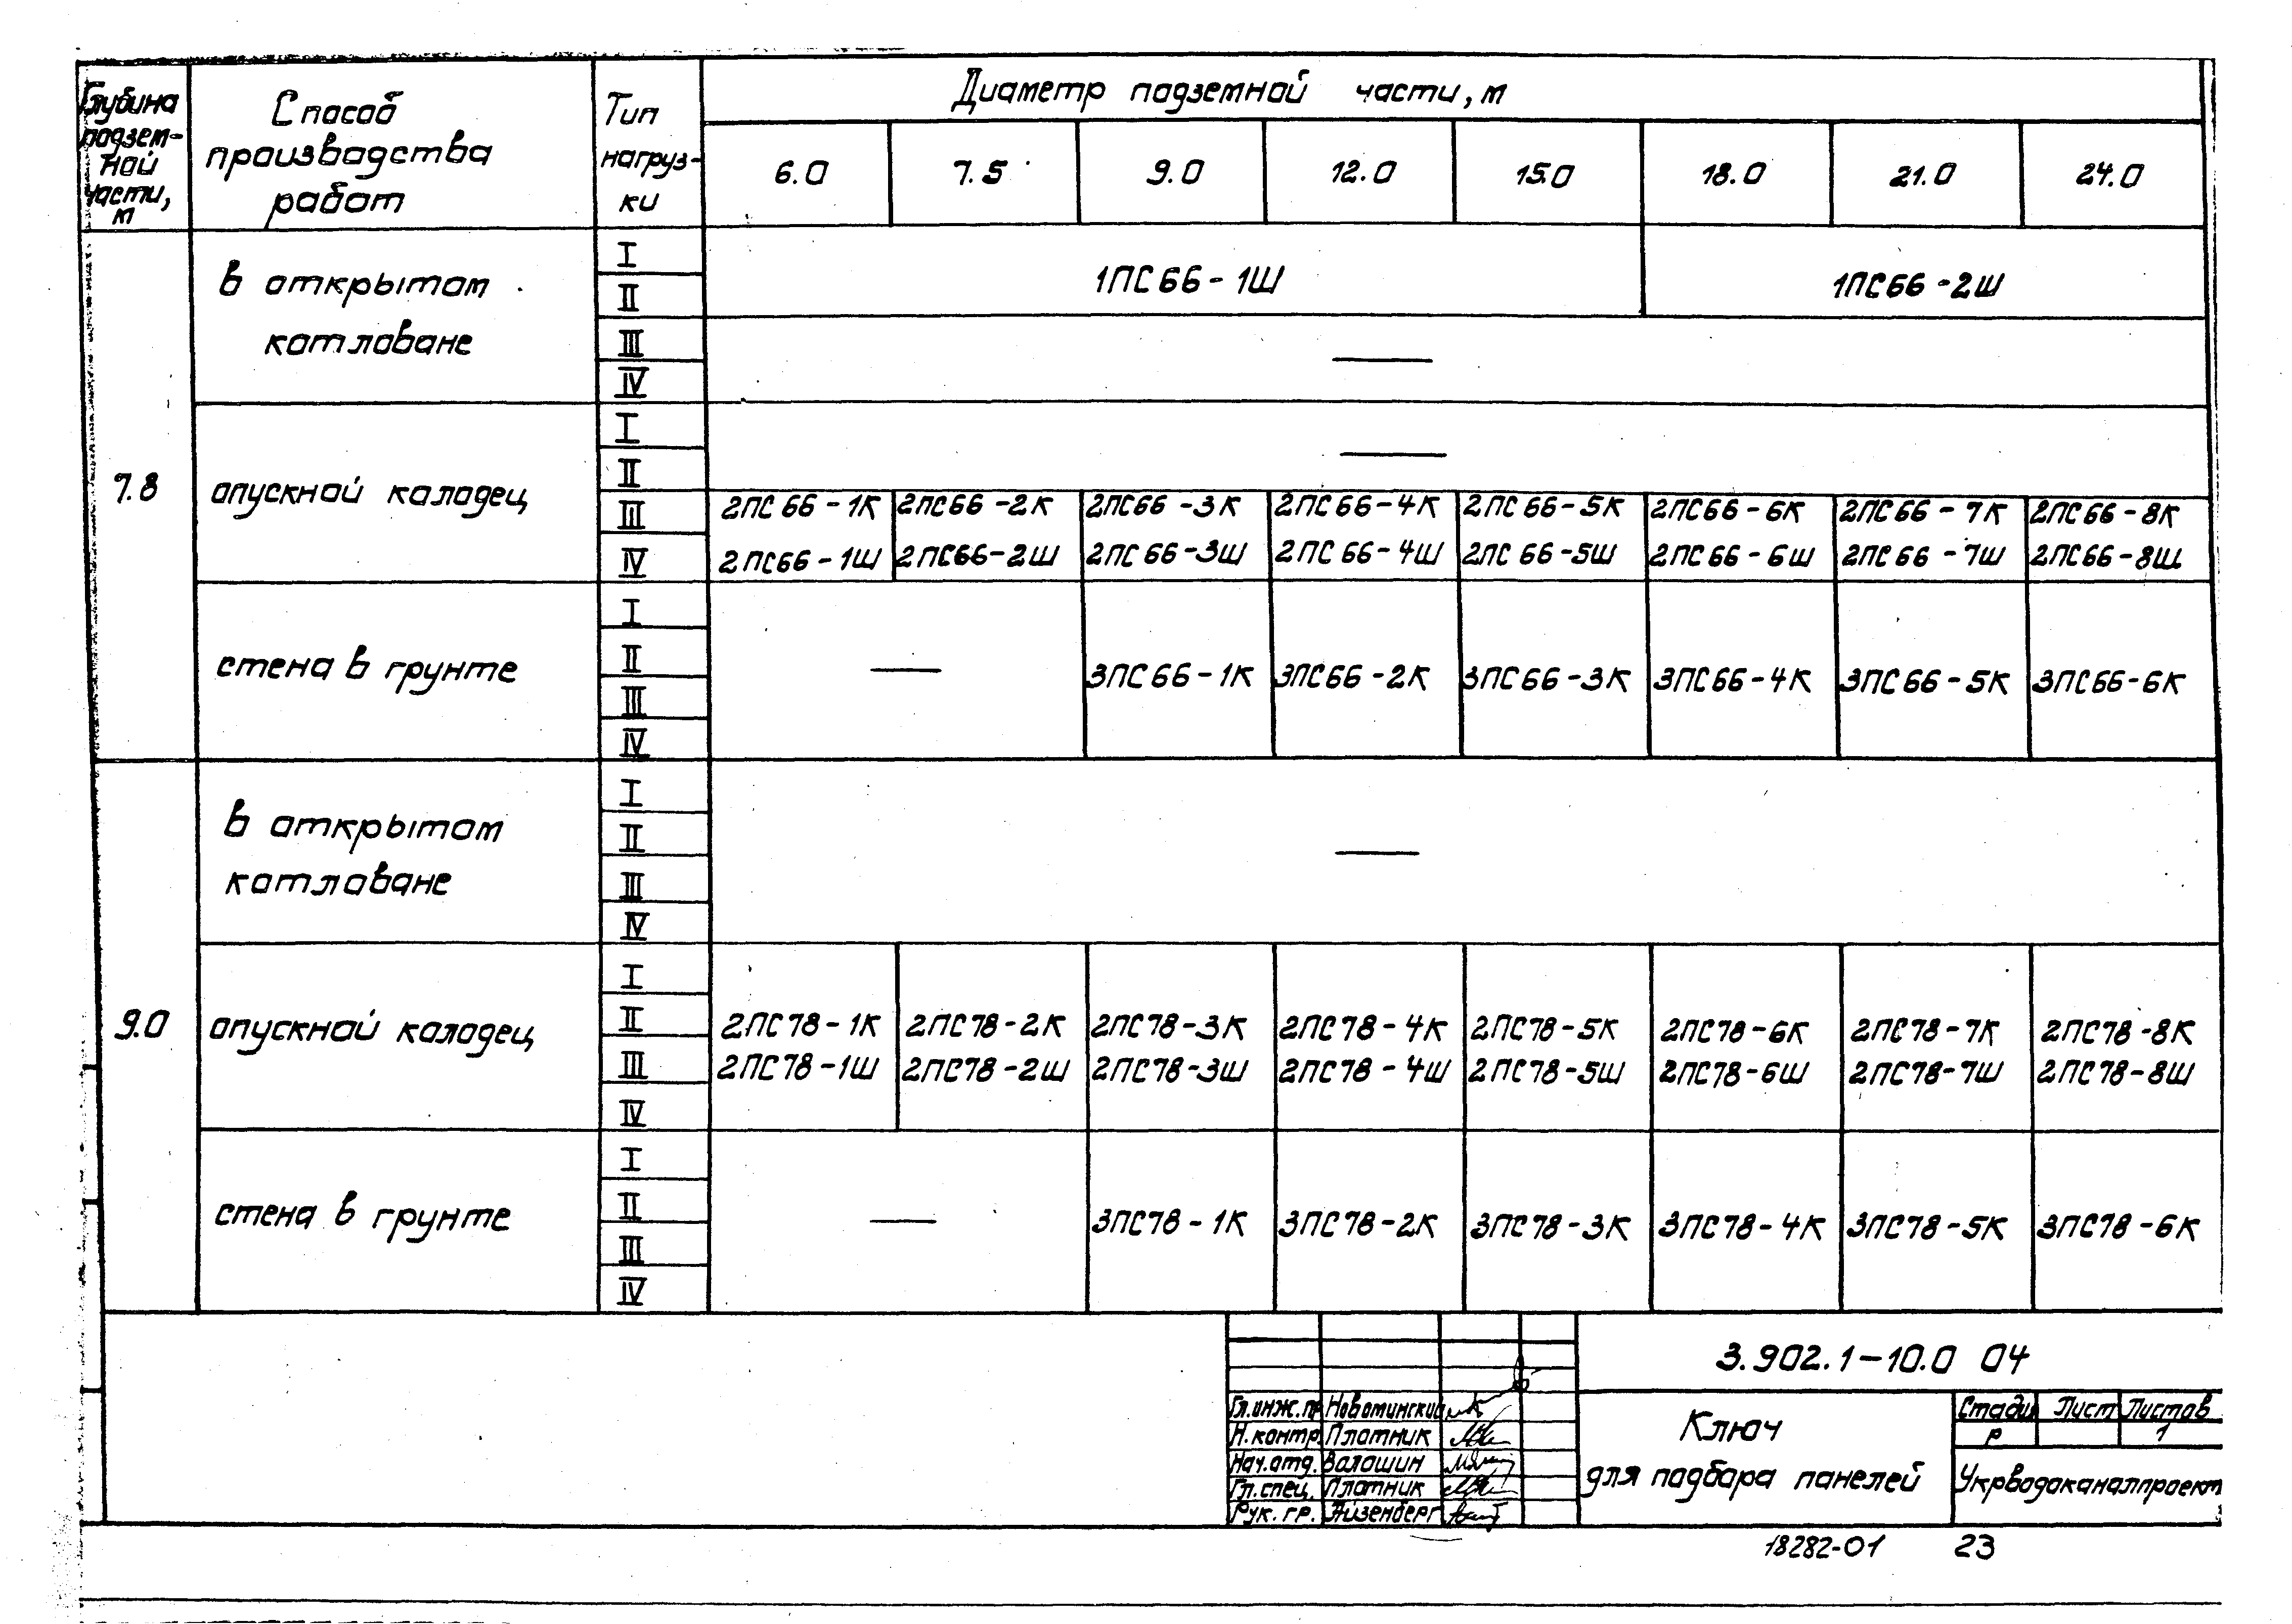 Глубина подземной части, м
Способ производства работ
Тип нагрузки
Диаметр подземной части, м
6.0 7.5 9.0 12.0 15.0 18.0 21.0 24.0
7.8
в открытом
котловане
I
II
III
IV
1ПС66-1Ш 1ПС66-2Ш
—
опускной колодец
I
II
III
IV
—
2ПС66-1К 2ПС66-2К 2ПС66-3К 2ПС66-4К 2ПС66-5К 2ПС66-6К 2ПС66-7К 2ПС66-8К
2ПС66-1Ш 2ПС66-2Ш 2ПС66-3Ш 2ПС66-4Ш 2ПС66-5Ш 2ПС66-6Ш 2ПС66-7Ш 2ПС66-8Ш
стена в грунте
I
II
III
IV
— 3ПС66-1К 3ПС66-2К 3ПС66-3К 3ПС66-4К 3ПС66-5К 3ПС66-6К
9.0
в открытом
котловане
I
II
III
IV
—
опускной колодец
I
II
III
IV
2ПС78-1К 2ПС78-2К 2ПС78-3К 2ПС78-4К 2ПС78-5К 2ПС78-6К 2ПС78-7К 2ПС78-8К
2ПС78-1Ш 2ПС78-2Ш 2ПС78-3Ш 2ПС78-4Ш 2ПС78-5Ш 2ПС78-6Ш 2ПС78-7Ш 2ПС78-8Ш
стена в грунте
I
II
III
IV
— 3ПС78-1К 3ПС78-2К 3ПС78-3К 3ПС78-4К 3ПС78-5К 3ПС78-6К
3.902.1-10.0 04
Гл.инж.пр Новоминский
Н.контр. Плотник
Нач.отд. Волошин
Гл.спец. Плотник
Рук.гр. Айзенберг
Ключ
для подбора панелей
Стадия Лист Листов
Р 1
Укрводоканалпроект
18282-01 23